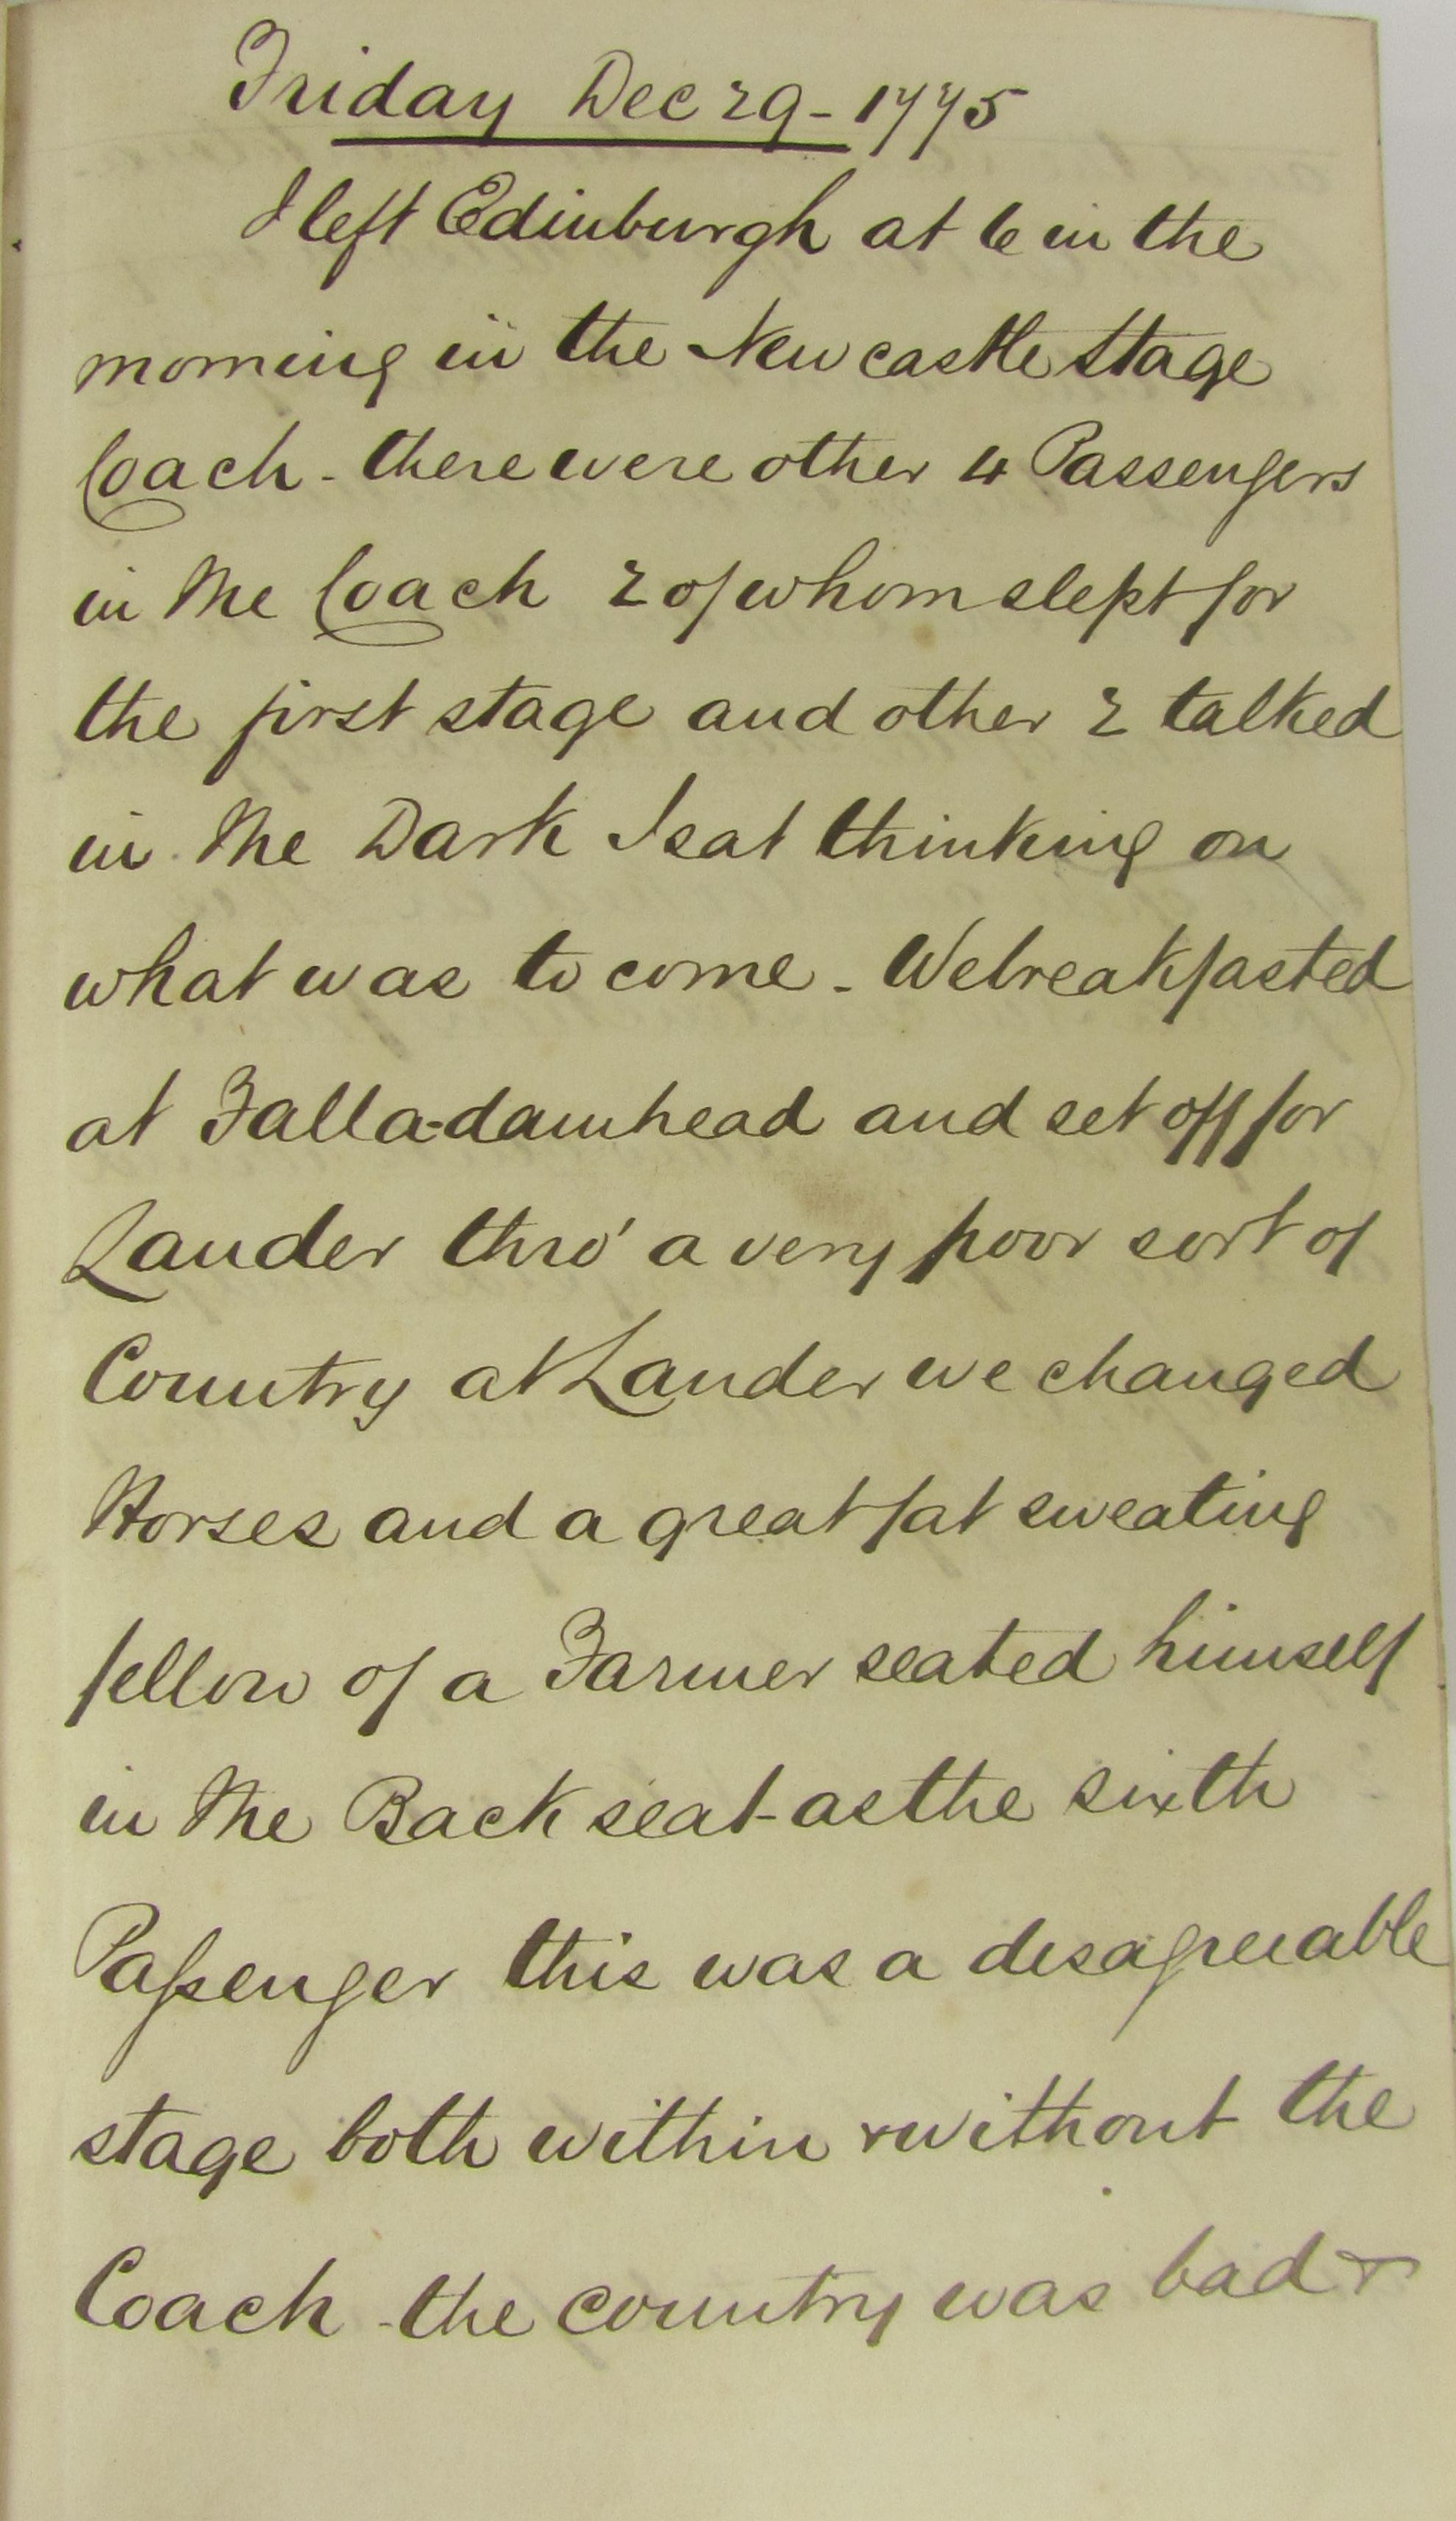 Friday Dec 29 - 1775
I left Edinburgh at 6 in the
morning in the Newcastle Stage
Coach - there were other 4 Passengers
in the Coach 2 of whom slept for
the first stage and other 2 talked
in the Dark I sat thinking on
what was to come - We breakfasted
at Falla-damhead and set off for
Lauder thro' a very poor sort of
Country at Lauder we changed
Horses and a great fat sweating
fellow of a Farmer seated himself
in the Back seat - as the sixth
Paſsenger this was a desagreeable
stage both within & without the
Coach - the country was bad &